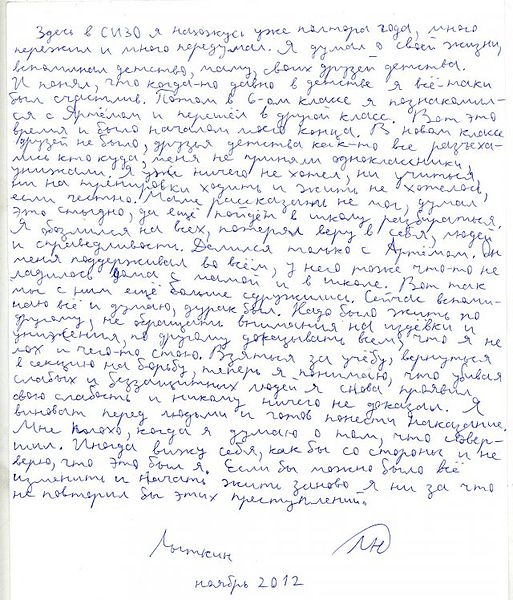 Здесь в СИЗО я нахожусь уже полтора года, много
пережил и много передумал. Я думал о своей жизни,
вспоминал детство, маму, своих друзей детства.
И понял, что когда-то давно в детстве я всё-таки
был счастлив. Потом в 6-ом классе я познакомил-
ся с Артёмом и перешёл в другой класс. Вот это
время и было началом моего конца. В новом классе
друзей не было, друзья детства как-то все разъеха-
лись кто куда, меня не приняли одноклассники,
унижали. Я уже ничего не хотел, ни учиться,
ни на тренировки ходить и жить не хотелось,
если честно. Маме рассказать не мог, думал
это стыдно, да ещё пойдёт в школу разбираться.
Я обозлился на всех, потерял веру в себя, людей
и справедливости. Делился только с Артёмом. Он
меня поддерживал во всём, у него тоже что-то не
ладилось дома с мамой и в школе. Вот так
мы с ним ещё больше сдружились. Сейчас вспоми-
наю всё и думаю, дурак был. Надо было жить по
другому, не обращать внимания на издёвки и
унижения, по другому доказывать всем, что я не
лох и чего-то стою. Взяться за учёбу, вернуться
в секцию на борьбу, теперь я понимаю, что убивая
слабых и беззащитных людей я снова проявил
свою слабость и никому ничего не доказал. Я
виноват перед людьми и готов понести наказание.
Мне плохо, когда я думаю о том, что совер-
шил. Иногда вижу себя, как бы со стороны и не
верю, что это был я. Если бы можно было всё
изменить и начать жить заново я ни за что
не повторил бы этих преступлений.
Лыткин
ноябрь 2012